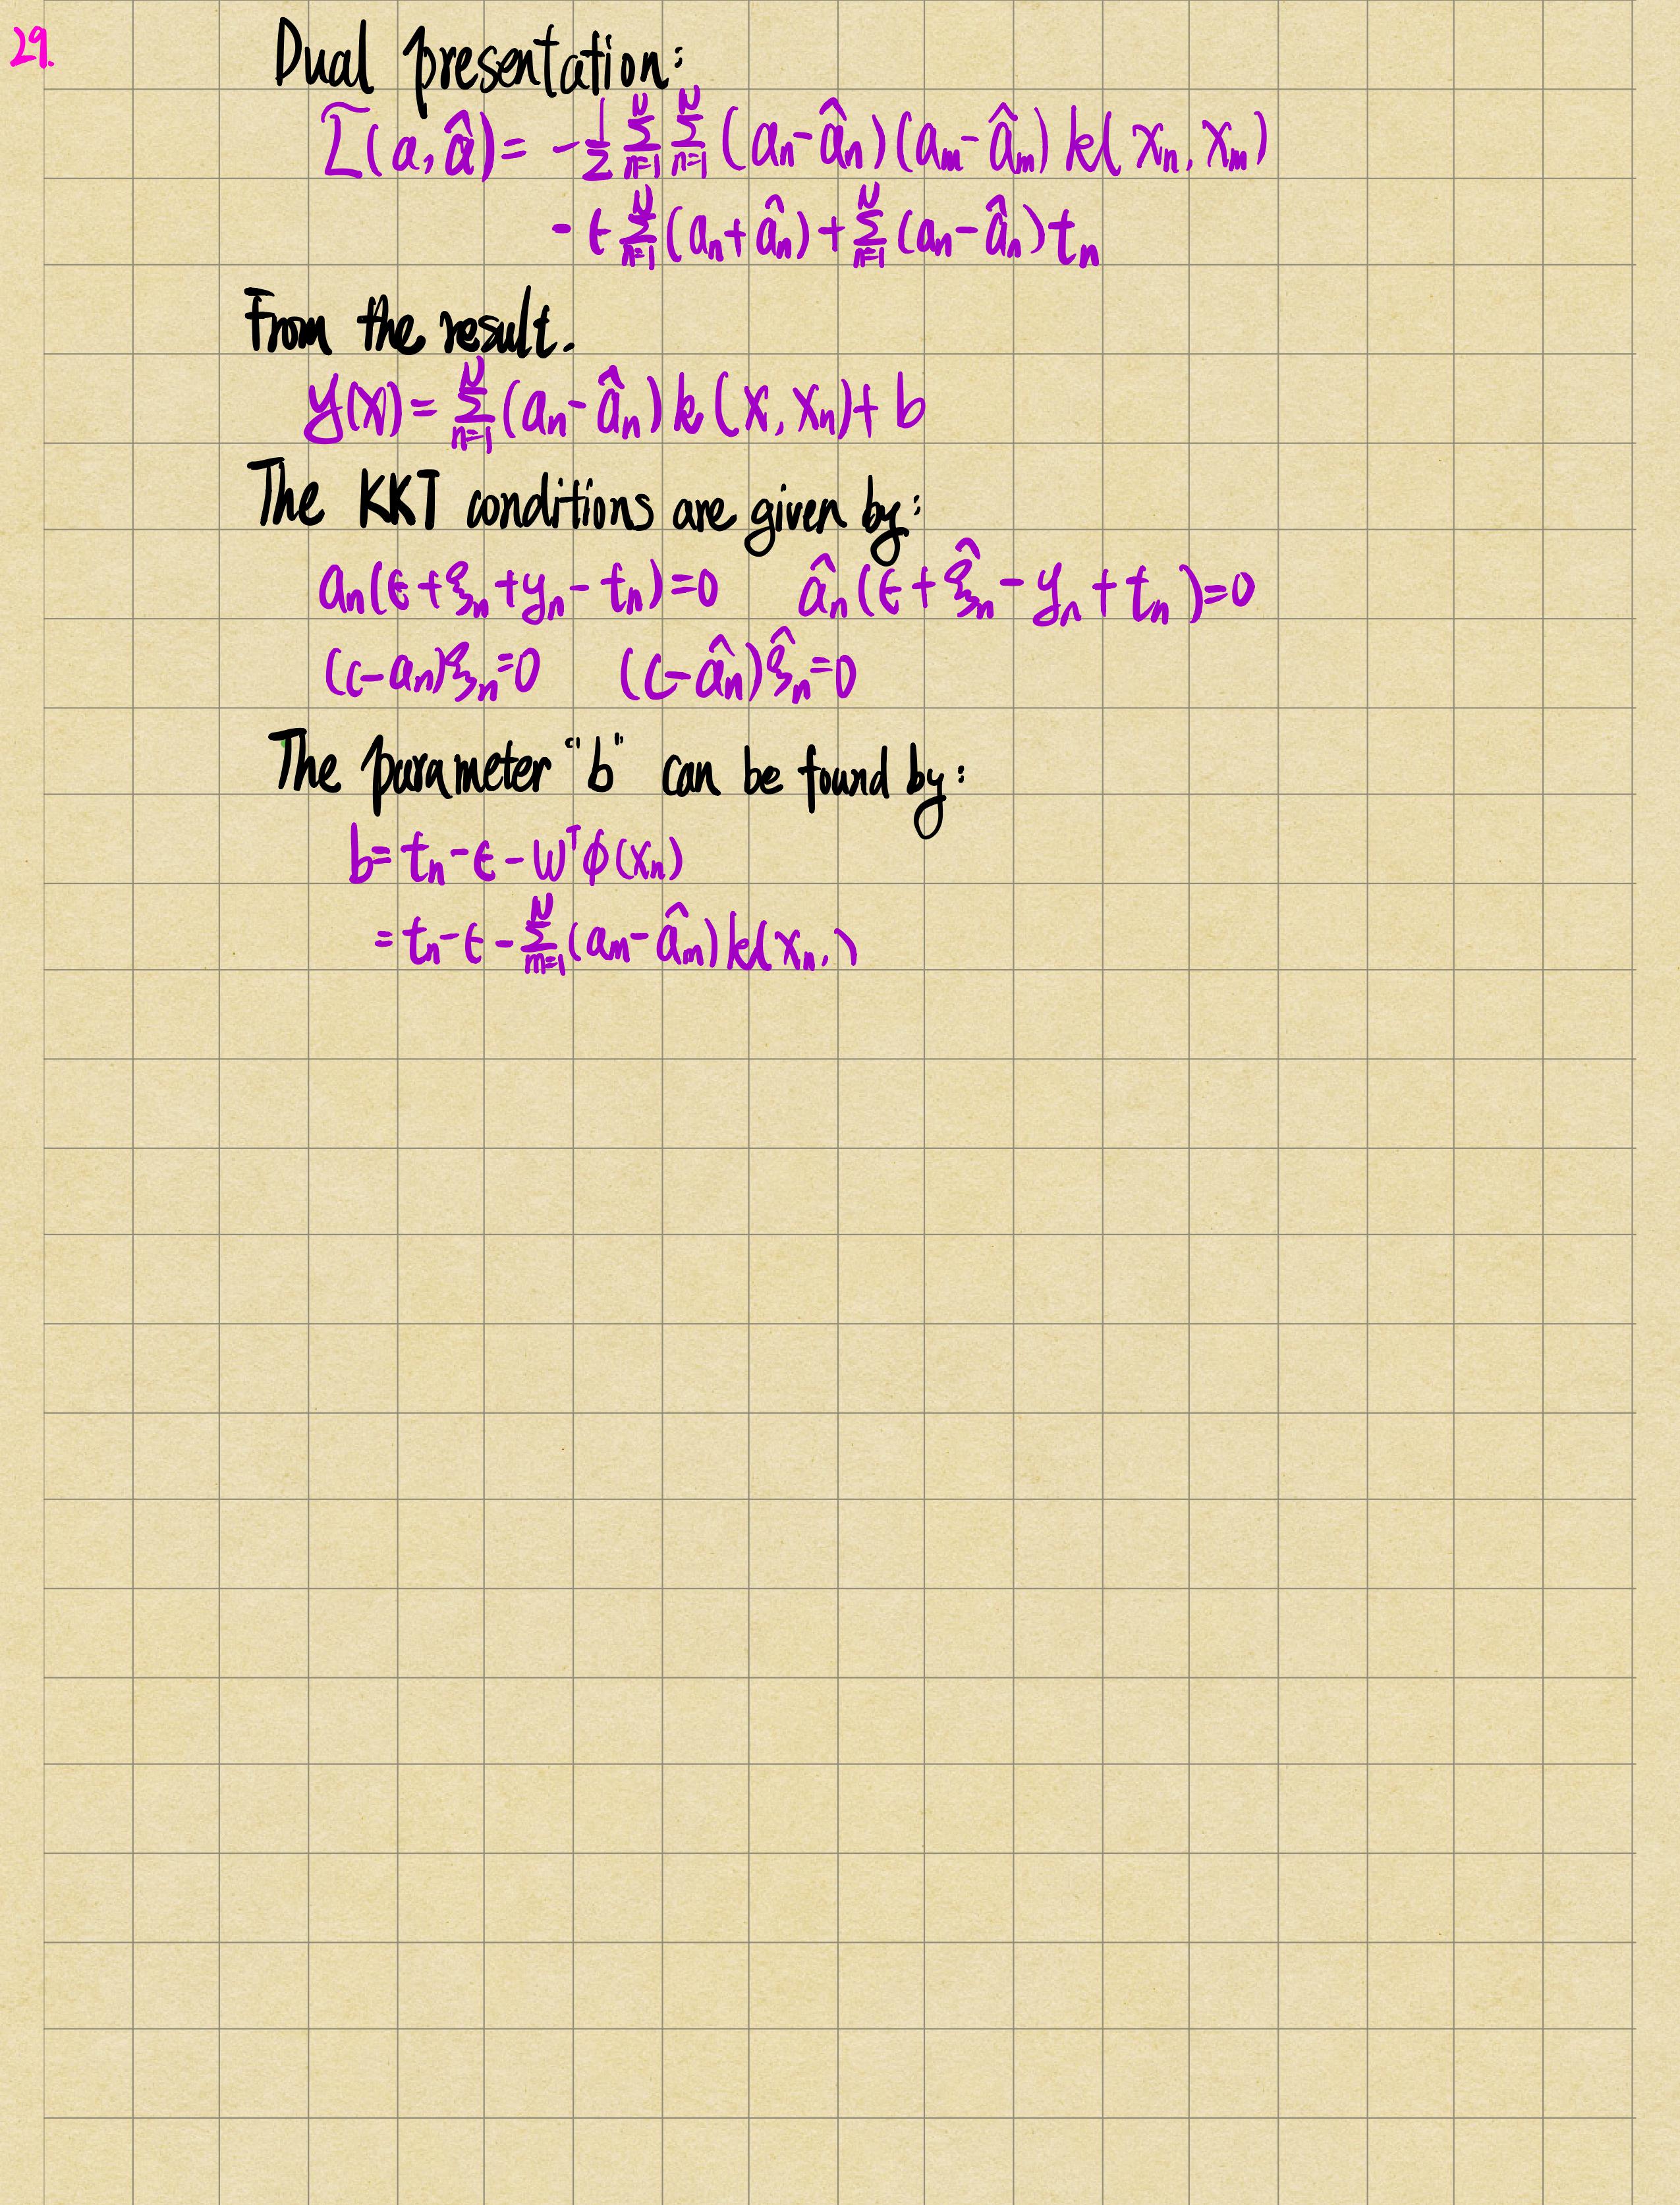 29.
Dual presentation:
L̃(a, â) = -1/2 Σ_{n=1}^{N} Σ_{n=1}^{N} (aₙ - âₙ)(aₘ - âₘ) k(xₙ, xₘ)
- ϵ Σ_{n=1}^{N} (aₙ + âₙ) + Σ_{n=1}^{N} (aₙ - âₙ) tₙ
From the result.
y(x) = Σ_{n=1}^{N} (aₙ - âₙ) k(x, xₙ) + b
The KKT conditions are given by:
aₙ(ϵ + ξₙ + yₙ - tₙ) = 0 âₙ(ϵ + ξ̂ₙ - yₙ + tₙ) = 0
(C - aₙ)ξₙ = 0 (C - âₙ)ξ̂ₙ = 0
The parameter "b" can be found by:
b = tₙ - ϵ - wᵀϕ(xₙ)
= tₙ - ϵ - Σ_{m=1}^{N} (aₘ - âₘ) k(xₙ, )